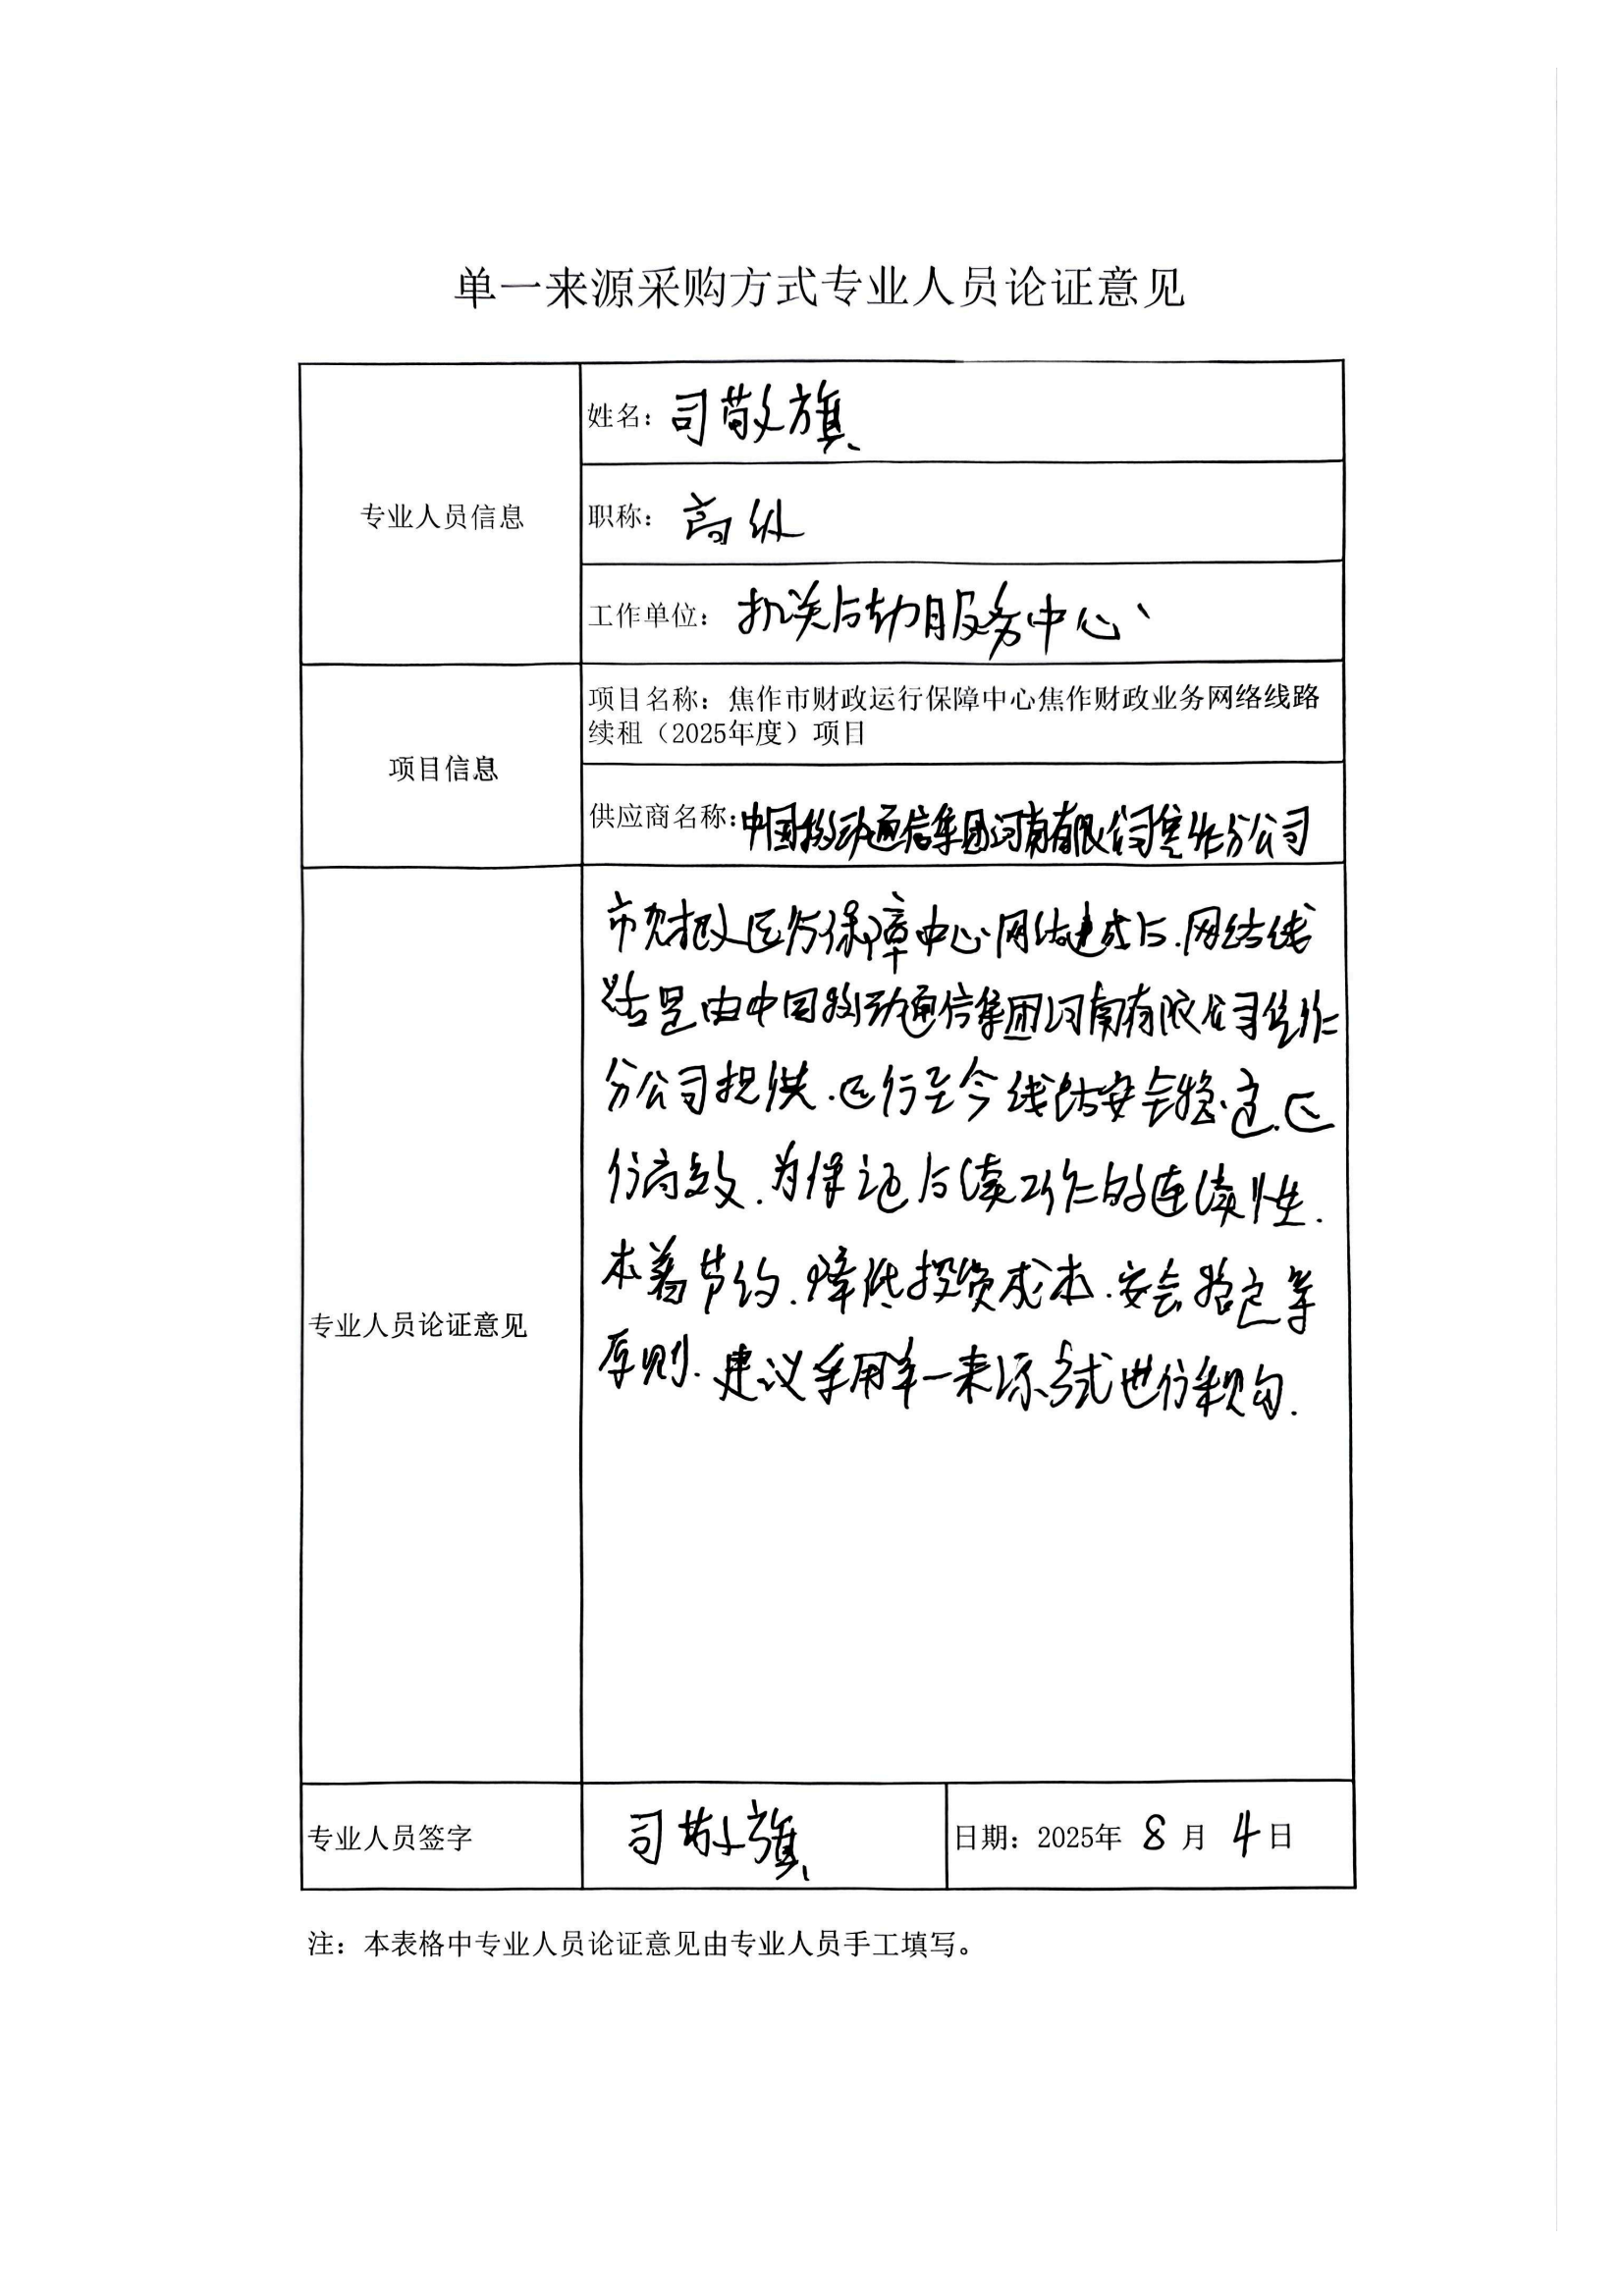 单一来源采购方式专业人员论证意见
专业人员信息
姓名：司敬旗
职称：高级
工作单位：机关后勤服务中心
项目信息
项目名称：焦作市财政运行保障中心焦作财政业务网络线路
续租（2025年度）项目
供应商名称：中国移动通信集团河南有限公司焦作分公司
专业人员论证意见
市财政运行保障中心网络建成后.网络线
路是由中国移动通信集团河南有限公司焦作
分公司提供.运行至今线路安全稳定.运
行高效.为保证后续工作的连续性.
本着节约.降低投资成本.安全稳定等
原则.建议采用单一来源方式进行采购.
专业人员签字
司敬旗
日期：2025年 8 月 4 日
注：本表格中专业人员论证意见由专业人员手工填写。